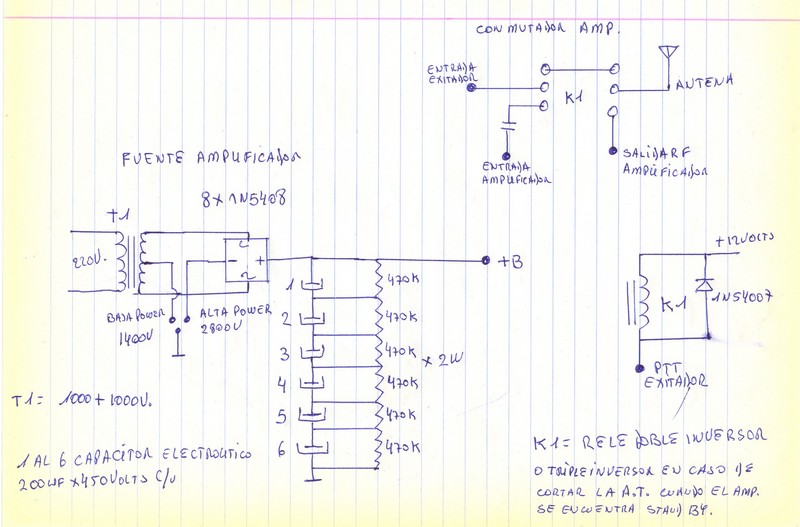 CONMUTADOR AMP.
ENTRADA
EXITADOR
K1
ANTENA
ENTRADA
AMPLIFICADOR
SALIDA RF
AMPLIFICADOR
FUENTE AMPLIFICADOR
8 x 1N5408
T1
220V.
- +
+B
BAJA POWER
1400V
ALTA POWER
2800V
1 470K
2 470K
3 470K
4 470K
5 470K
6 470K
x 2W
+12VOLTS
K-1
1N54007
PTT
EXITADOR
T1= 1000+1000V.
1 AL 6 CAPACITOR ELECTROLITICO
200UF x 450VOLTS C/U
K1= RELE DOBLE INVERSOR
O TRIPLE INVERSOR EN CASO DE
CORTAR LA A.T. CUANDO EL AMP.
SE ENCUENTRA STAND BY.